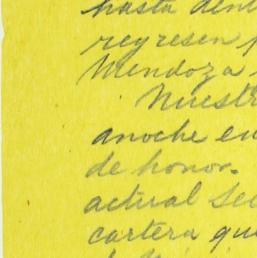 hasta dent
regresen p
Mendoza
Nuestr
anoche en
de honor.
actual Sec
cartera que